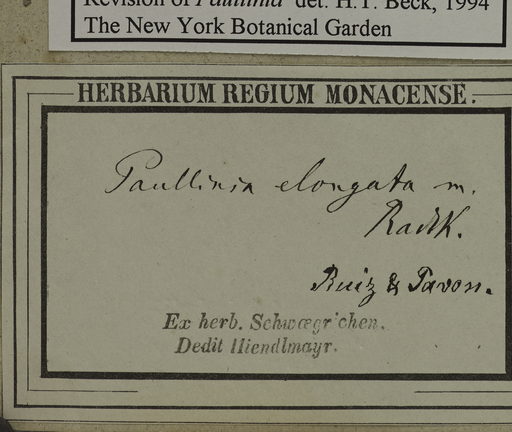 Revision of Paullinia det. H.T. Beck, 1994
The New York Botanical Garden
HERBARIUM REGIUM MONACENSE.
Paullinia elongata m.
Radlk.
Ruiz & Pavon.
Ex herb. Schwægr'chen.
Dedit Hiendlmayr.